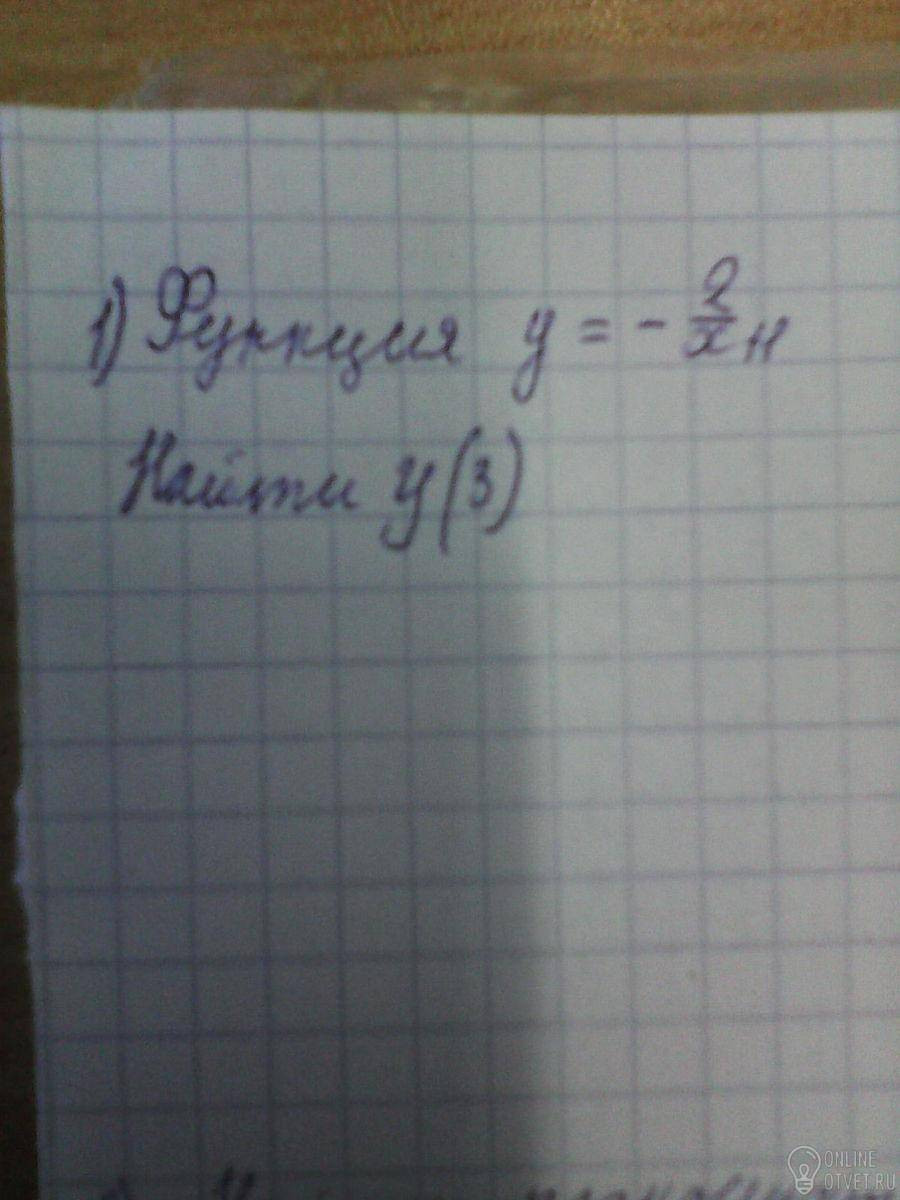 1) Функция y = - 2/x н
Найти y(3)
ONLINE
OTVET.RU